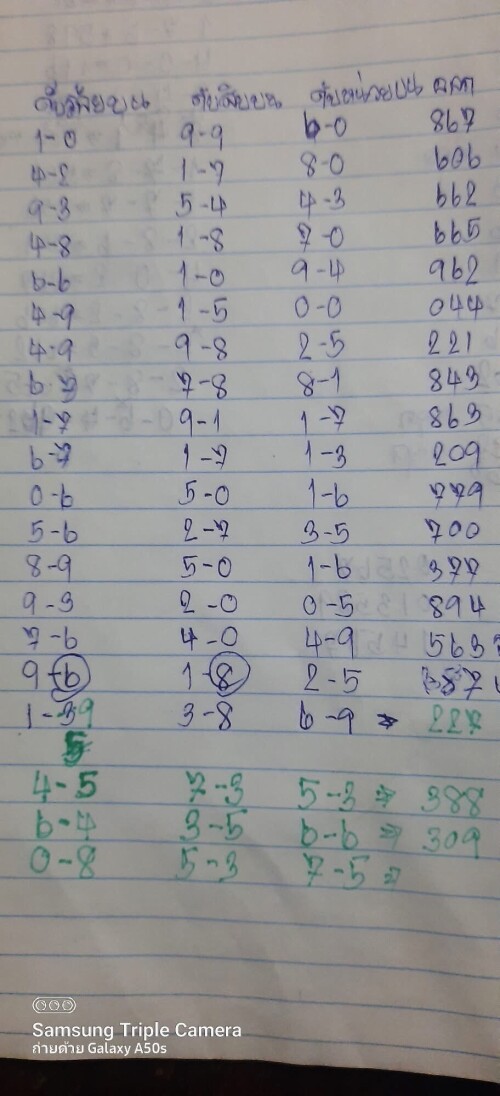 ดับร้อยบน ดับสิบบน ดับหน่วยบน ออก
1-0 9-9 6-0 867
4-2 1-7 8-0 606
9-3 5-4 4-3 662
4-8 1-8 7-0 665
6-6 1-0 9-4 962
4-9 1-5 0-0 044
4-9 9-8 2-5 221
6-7 7-8 8-1 843
1-7 9-1 1-7 863
6-7 1-7 1-3 209
0-6 5-0 1-6 779
5-6 2-7 3-5 700
8-9 5-0 1-6 377
9-3 2-0 0-5 894
7-6 4-0 4-9 563
9-6 1-8 2-5
1-39 3-8 6-9 → 227
5
4-5 7-3 5-3 → 388
6-7 3-5 6-6 → 309
0-8 5-3 7-5 →
Samsung Triple Camera
ถ่ายด้วย Galaxy A50s